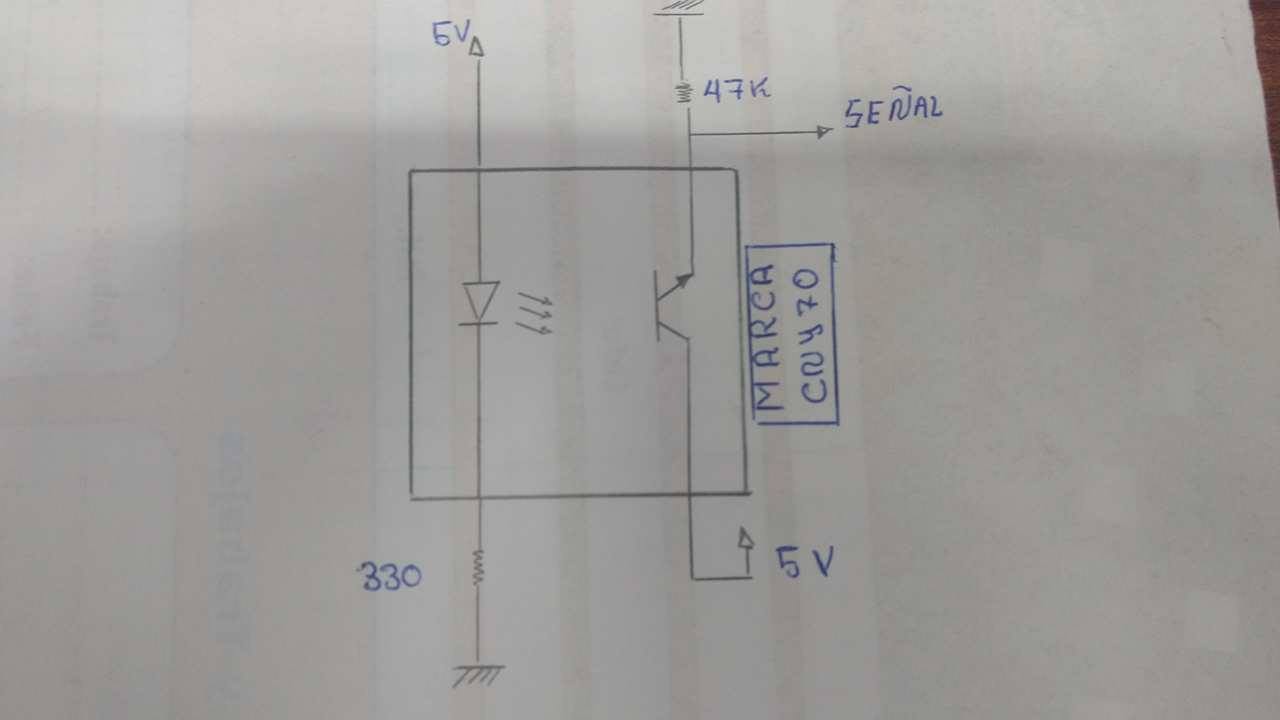 5V
47K
SEÑAL
MARCA
CNY70
330
5 V